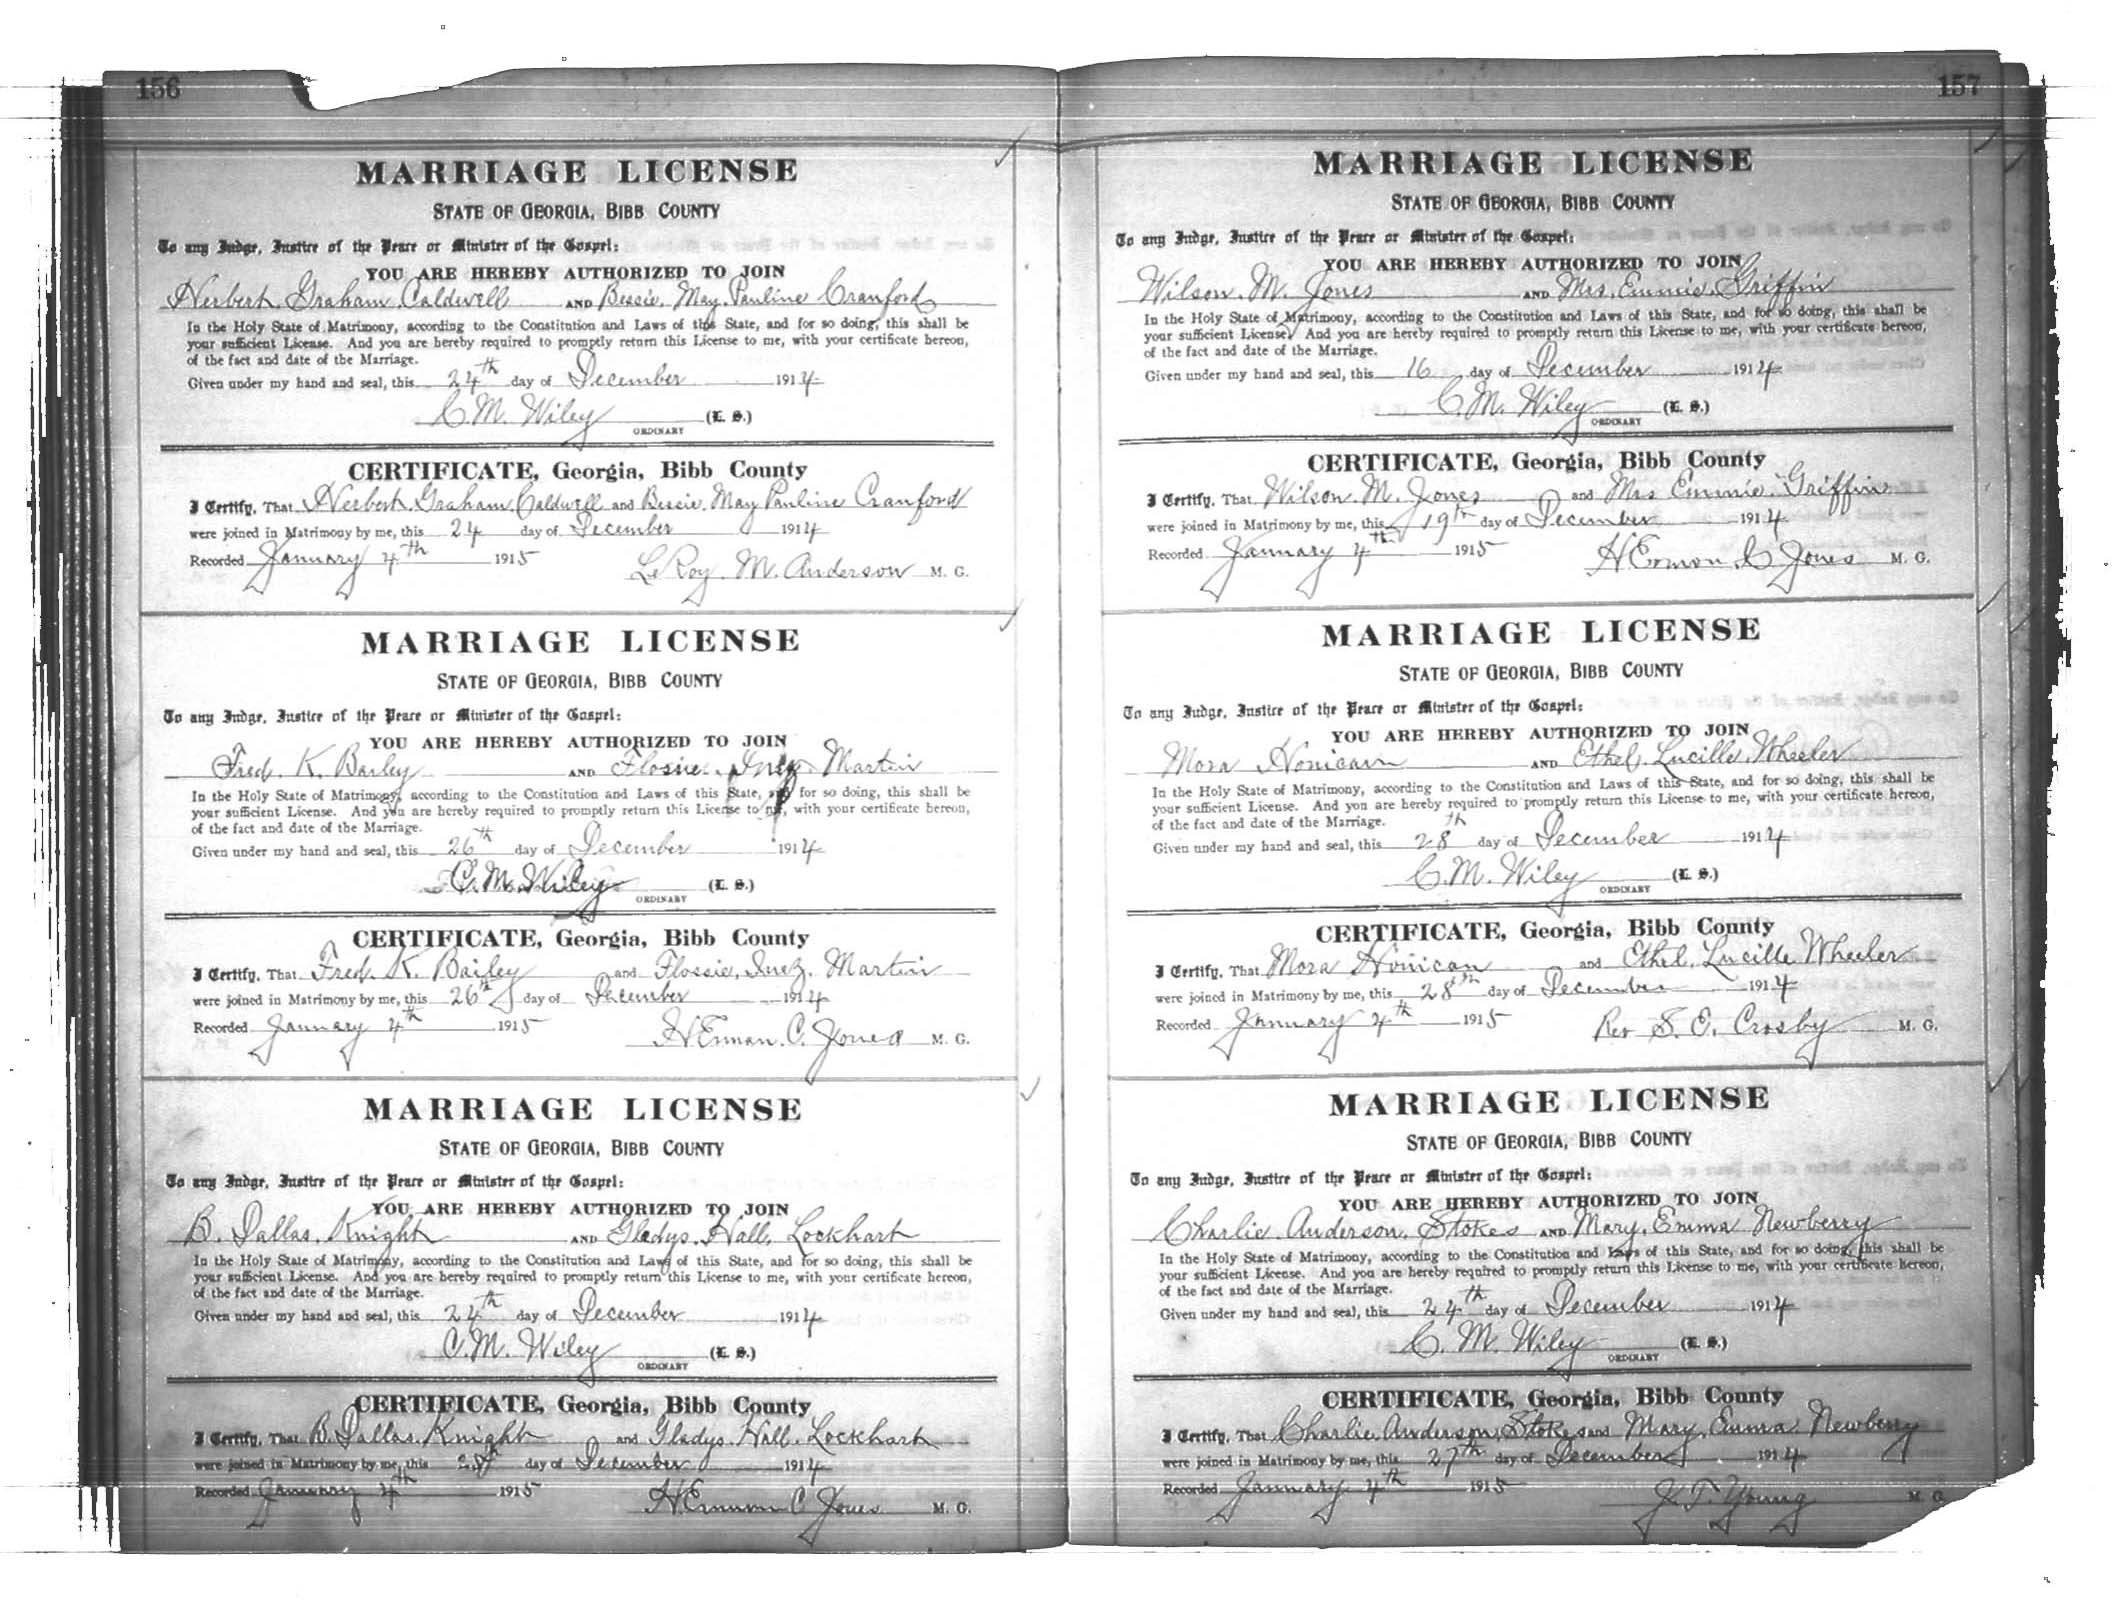 156
MARRIAGE LICENSE
STATE OF GEORGIA, BIBB COUNTY
To any Judge, Justice of the Peace or Minister of the Gospel:
YOU ARE HEREBY AUTHORIZED TO JOIN
Herbert Graham Caldwell AND Bessie May Pauline Cranford
In the Holy State of Matrimony, according to the Constitution and Laws of this State, and for so doing, this shall be
your sufficient License. And you are hereby required to promptly return this License to me, with your certificate hereon,
of the fact and date of the Marriage.
Given under my hand and seal, this 24th day of December 1914
C. M. Wiley (L. S.)
ORDINARY
CERTIFICATE, Georgia, Bibb County
I Certify, That Herbert Graham Caldwell and Bessie May Pauline Cranford
were joined in Matrimony by me, this 24 day of December 1914
Recorded January 4th 1915 LeRoy M. Anderson M. G.
MARRIAGE LICENSE
STATE OF GEORGIA, BIBB COUNTY
To any Judge, Justice of the Peace or Minister of the Gospel:
YOU ARE HEREBY AUTHORIZED TO JOIN
Fred. K. Bailey AND Flossie Inez Martin
In the Holy State of Matrimony, according to the Constitution and Laws of this State, and for so doing, this shall be
your sufficient License. And you are hereby required to promptly return this License to me, with your certificate hereon,
of the fact and date of the Marriage.
Given under my hand and seal, this 26th day of December 1914
C. M. Wiley (L. S.)
ORDINARY
CERTIFICATE, Georgia, Bibb County
I Certify, That Fred. K. Bailey and Flossie Inez Martin
were joined in Matrimony by me, this 26th day of December 1914
Recorded January 4th 1915 HErman C. Jones M. G.
MARRIAGE LICENSE
STATE OF GEORGIA, BIBB COUNTY
To any Judge, Justice of the Peace or Minister of the Gospel:
YOU ARE HEREBY AUTHORIZED TO JOIN
B. Dallas Knight AND Gladys Hall Lockhart
In the Holy State of Matrimony, according to the Constitution and Laws of this State, and for so doing, this shall be
your sufficient License. And you are hereby required to promptly return this License to me, with your certificate hereon,
of the fact and date of the Marriage.
Given under my hand and seal, this 24th day of December 1914
C. M. Wiley (L. S.)
ORDINARY
CERTIFICATE, Georgia, Bibb County
I Certify, That B. Dallas Knight and Gladys Hall Lockhart
were joined in Matrimony by me, this day of December 1914
Recorded January 4th 1915 HErman C Jones M. G.
157
MARRIAGE LICENSE
STATE OF GEORGIA, BIBB COUNTY
To any Judge, Justice of the Peace or Minister of the Gospel:
YOU ARE HEREBY AUTHORIZED TO JOIN
Wilson M. Jones AND Mrs. Emmie Griffin
In the Holy State of Matrimony, according to the Constitution and Laws of this State, and for so doing, this shall be
your sufficient License. And you are hereby required to promptly return this License to me, with your certificate hereon,
of the fact and date of the Marriage.
Given under my hand and seal, this 16 day of December 1914
C. M. Wiley (L. S.)
ORDINARY
CERTIFICATE, Georgia, Bibb County
I Certify, That Wilson M. Jones and Mrs Emmie Griffin
were joined in Matrimony by me, this 19th day of December 1914
Recorded January 4th 1915 HErmon C Jones M. G.
MARRIAGE LICENSE
STATE OF GEORGIA, BIBB COUNTY
To any Judge, Justice of the Peace or Minister of the Gospel:
YOU ARE HEREBY AUTHORIZED TO JOIN
Mora Honican AND Ethel Lucille Wheeler
In the Holy State of Matrimony, according to the Constitution and Laws of this State, and for so doing, this shall be
your sufficient License. And you are hereby required to promptly return this License to me, with your certificate hereon,
of the fact and date of the Marriage.
Given under my hand and seal, this 28th day of December 1914
C. M. Wiley (L. S.)
ORDINARY
CERTIFICATE, Georgia, Bibb County
I Certify, That Mora Honican and Ethel Lucille Wheeler
were joined in Matrimony by me, this 28th day of December 1914
Recorded January 4th 1915 Rev S. E. Crosby M. G.
MARRIAGE LICENSE
STATE OF GEORGIA, BIBB COUNTY
To any Judge, Justice of the Peace or Minister of the Gospel:
YOU ARE HEREBY AUTHORIZED TO JOIN
Charlie Anderson Stokes AND Mary Emma Newberry
In the Holy State of Matrimony, according to the Constitution and Laws of this State, and for so doing, this shall be
your sufficient License. And you are hereby required to promptly return this License to me, with your certificate hereon,
of the fact and date of the Marriage.
Given under my hand and seal, this 24th day of December 1914
C. M. Wiley (L. S.)
ORDINARY
CERTIFICATE, Georgia, Bibb County
I Certify, That Charlie Anderson Stokes and Mary Emma Newberry
were joined in Matrimony by me, this 27th day of December 1914
Recorded January 4th 1915 J. T. Young M. G.